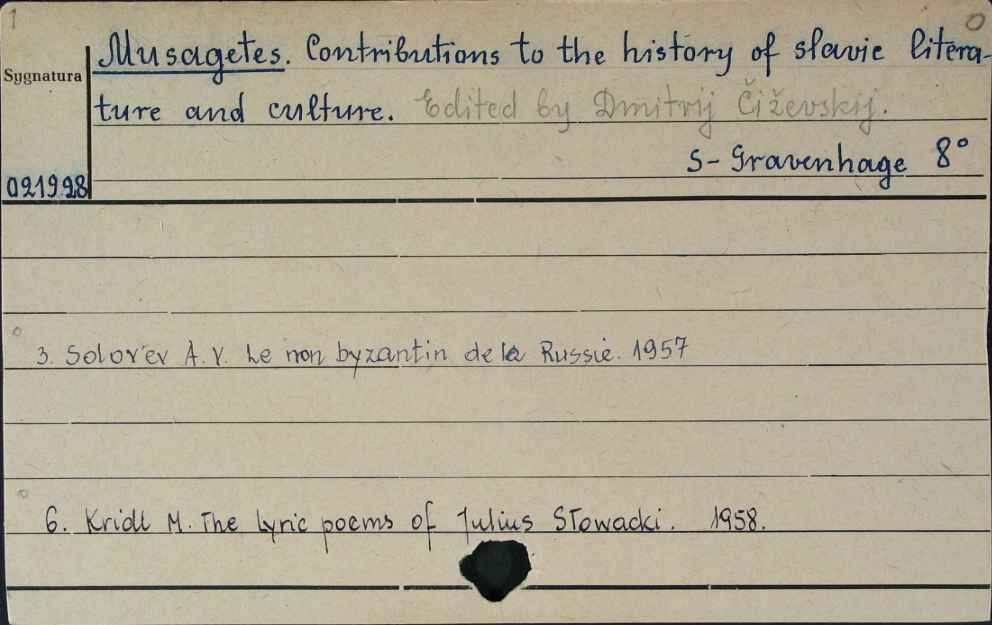 1
0
Musagetes. Contributions to the history of slavic litera-
Sygnatura
ture and culture. Edited by Dmitrij Čiževskij.
S-Gravenhage 8°
021998
3. Solov'ev A.V. Le non byzantin de la Russie. 1957
6. Kridl M. The lyric poems of Julius Słowacki. 1958.